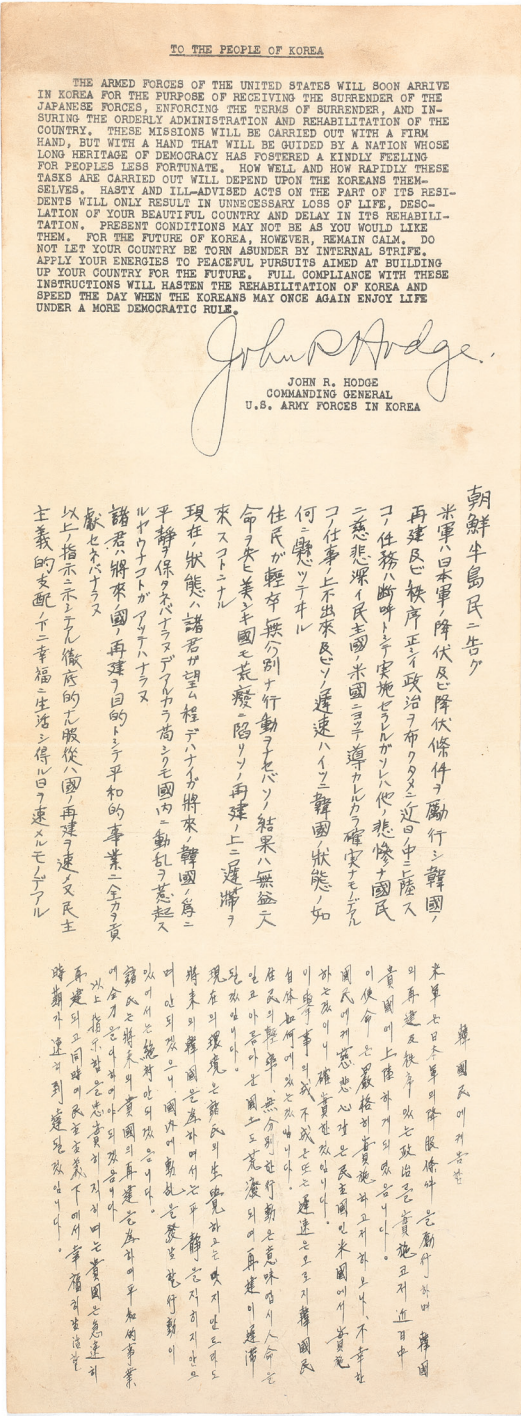 TO THE PEOPLE OF KOREA
THE ARMED FORCES OF THE UNITED STATES WILL SOON ARRIVE
IN KOREA FOR THE PURPOSE OF RECEIVING THE SURRENDER OF THE
JAPANESE FORCES, ENFORCING THE TERMS OF SURRENDER, AND IN-
SURING THE ORDERLY ADMINISTRATION AND REHABILITATION OF THE
COUNTRY. THESE MISSIONS WILL BE CARRIED OUT WITH A FIRM
HAND, BUT WITH A HAND THAT WILL BE GUIDED BY A NATION WHOSE
LONG HERITAGE OF DEMOCRACY HAS FOSTERED A KINDLY FEELING
FOR PEOPLES LESS FORTUNATE. HOW WELL AND HOW RAPIDLY THESE
TASKS ARE CARRIED OUT WILL DEPEND UPON THE KOREANS THEM-
SELVES. HASTY AND ILL-ADVISED ACTS ON THE PART OF ITS RESI-
DENTS WILL ONLY RESULT IN UNNECESSARY LOSS OF LIFE, DESO-
LATION OF YOUR BEAUTIFUL COUNTRY AND DELAY IN ITS REHABILI-
TATION. PRESENT CONDITIONS MAY NOT BE AS YOU WOULD LIKE
THEM. FOR THE FUTURE OF KOREA, HOWEVER, REMAIN CALM. DO
NOT LET YOUR COUNTRY BE TORN ASUNDER BY INTERNAL STRIFE.
APPLY YOUR ENERGIES TO PEACEFUL PURSUITS AIMED AT BUILDING
UP YOUR COUNTRY FOR THE FUTURE. FULL COMPLIANCE WITH THESE
INSTRUCTIONS WILL HASTEN THE REHABILITATION OF KOREA AND
SPEED THE DAY WHEN THE KOREANS MAY ONCE AGAIN ENJOY LIFE
UNDER A MORE DEMOCRATIC RULE.
John R Hodge.
JOHN R. HODGE
COMMANDING GENERAL
U.S. ARMY FORCES IN KOREA
朝鮮半島民ニ告グ
米軍ハ日本軍ノ降伏及ビ降伏條件ヲ勵行シ韓國ノ
再建及ビ秩序正シイ政治ヲ布クタメニ近日ノ中ニ上陸ス
コノ任務ハ断呼トシテ実施セラレルガソレハ他ノ悲惨ナ國民
ニ慈悲深イ民主國ノ米國ニヨッテ導カレルカラ確実ナモノデアル
コノ仕事ノ上不出來及ビソノ遅速ハイツニ韓國ノ狀態ノ如
何ニ懸ツテヰル
住民ガ輕卒ノ無分別ナ行動ヲナセバソノ結果ハ無益ニ人
命ヲ失ヒ美シキ國モ荒廢ニ陥リソノ再建ノ上ニ遅滞ヲ
來スコトニナル
現在ノ狀態ハ諸君ガ望ム程デハナイガ將來ノ韓國ノ爲ニ
平靜ヲ保タネバナラヌデアルカラ苟シクモ國内ニ動乱ヲ惹起ス
ルヤウナコトガアツテハナラヌ
諸君ハ將來ノ國ノ再建ヲ目的トシテ平和的事業ニ全力ヲ貢
獻セネバナラヌ
以上ノ指示ニ示シテアル徹底的ナル服從ハ國ノ再建ヲ速メ又民主
主義的支配ノ下ニ幸福ニ生活シ得ル日ヲ速メルモノデアル
韓國民에게
米軍은日本軍의降服條件을勵行하며韓國
의再建及秩序있는政治를實施코저近日中
貴國에上陸하게되겠습니다。
이使命은嚴格히實施하고저하오나、不幸한
國民에게慈悲心많은民主國인米國에서實施
하는것이니確實한것입니다。
이事의成不成은또는遲速은오로지韓國民
自体如何에있는것입니다。
住民의輕率、無分別한行動은意味없시人命을
일고아름다운國土도荒廢되며再建이遲滯
될것입니다。
現在의環境은諸民의生覺하고는맞지안트라도
將來의韓國을為하여서는平靜을지히지안으
며안되겠으니國內에動亂을發生할行動이
있어서는絶對안되겠습니다。
諸民은將來의貴國의再建을為하여平和的事業
에全力을다하여야되겠습니다。
以上指示함을忠實히지히며는貴國은急速히
再建되고同時에民主主義下에서幸福히生活할
時期가速히到達될것입니다。